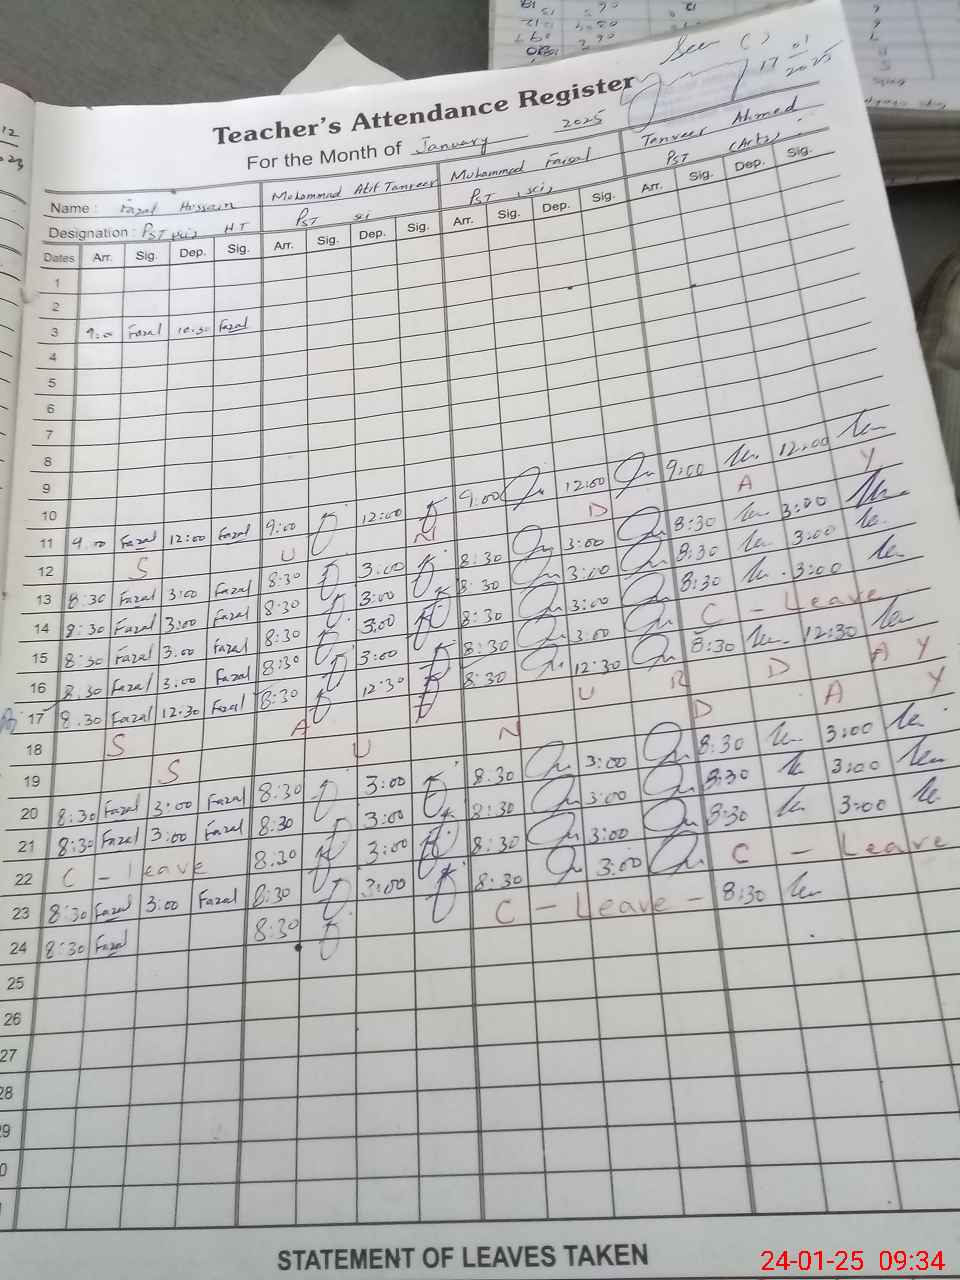 Seen
17 01 2025
Teacher's Attendance Register
For the Month of January 2025
Name : Fazal Hussain Mohammad Atif Tanveer Muhammad Faisal Tanveer Ahmed
Designation : PST sci HT PST sci PST sci PST (Arts)
Dates Arr. Sig. Dep. Sig. Arr. Sig. Dep. Sig. Arr. Sig. Dep. Sig. Arr. Sig. Dep. Sig.
1
2
3 9:00 Fazal 10:30 Fazal
4
5
6
7
8
9
10
11 9:00 Fazal 12:00 Fazal 9:00 12:00 9:00 12:00 9:00 12:00
12 S U N D A Y
13 8:30 Fazal 3:00 Fazal 8:30 3:00 8:30 3:00 8:30 3:00
14 8:30 Fazal 3:00 Fazal 8:30 3:00 8:30 3:00 8:30 3:00
15 8:30 Fazal 3:00 Fazal 8:30 3:00 8:30 3:00 8:30 3:00
16 8:30 Fazal 3:00 Fazal 8:30 3:00 8:30 3:00 C - Leave
17 8:30 Fazal 12:30 Fazal 8:30 12:30 8:30 12:30 8:30 12:30
18 S A U R D A Y
19 S U N D A Y
20 8:30 Fazal 3:00 Fazal 8:30 3:00 8:30 3:00 8:30 3:00
21 8:30 Fazal 3:00 Fazal 8:30 3:00 8:30 3:00 8:30 3:00
22 C - leave 8:30 3:00 8:30 3:00 8:30 3:00
23 8:30 Fazal 3:00 Fazal 8:30 3:00 8:30 3:00 C - Leave
24 8:30 Fazal 8:30 C - Leave - 8:30
25
26
27
28
STATEMENT OF LEAVES TAKEN
24-01-25 09:34